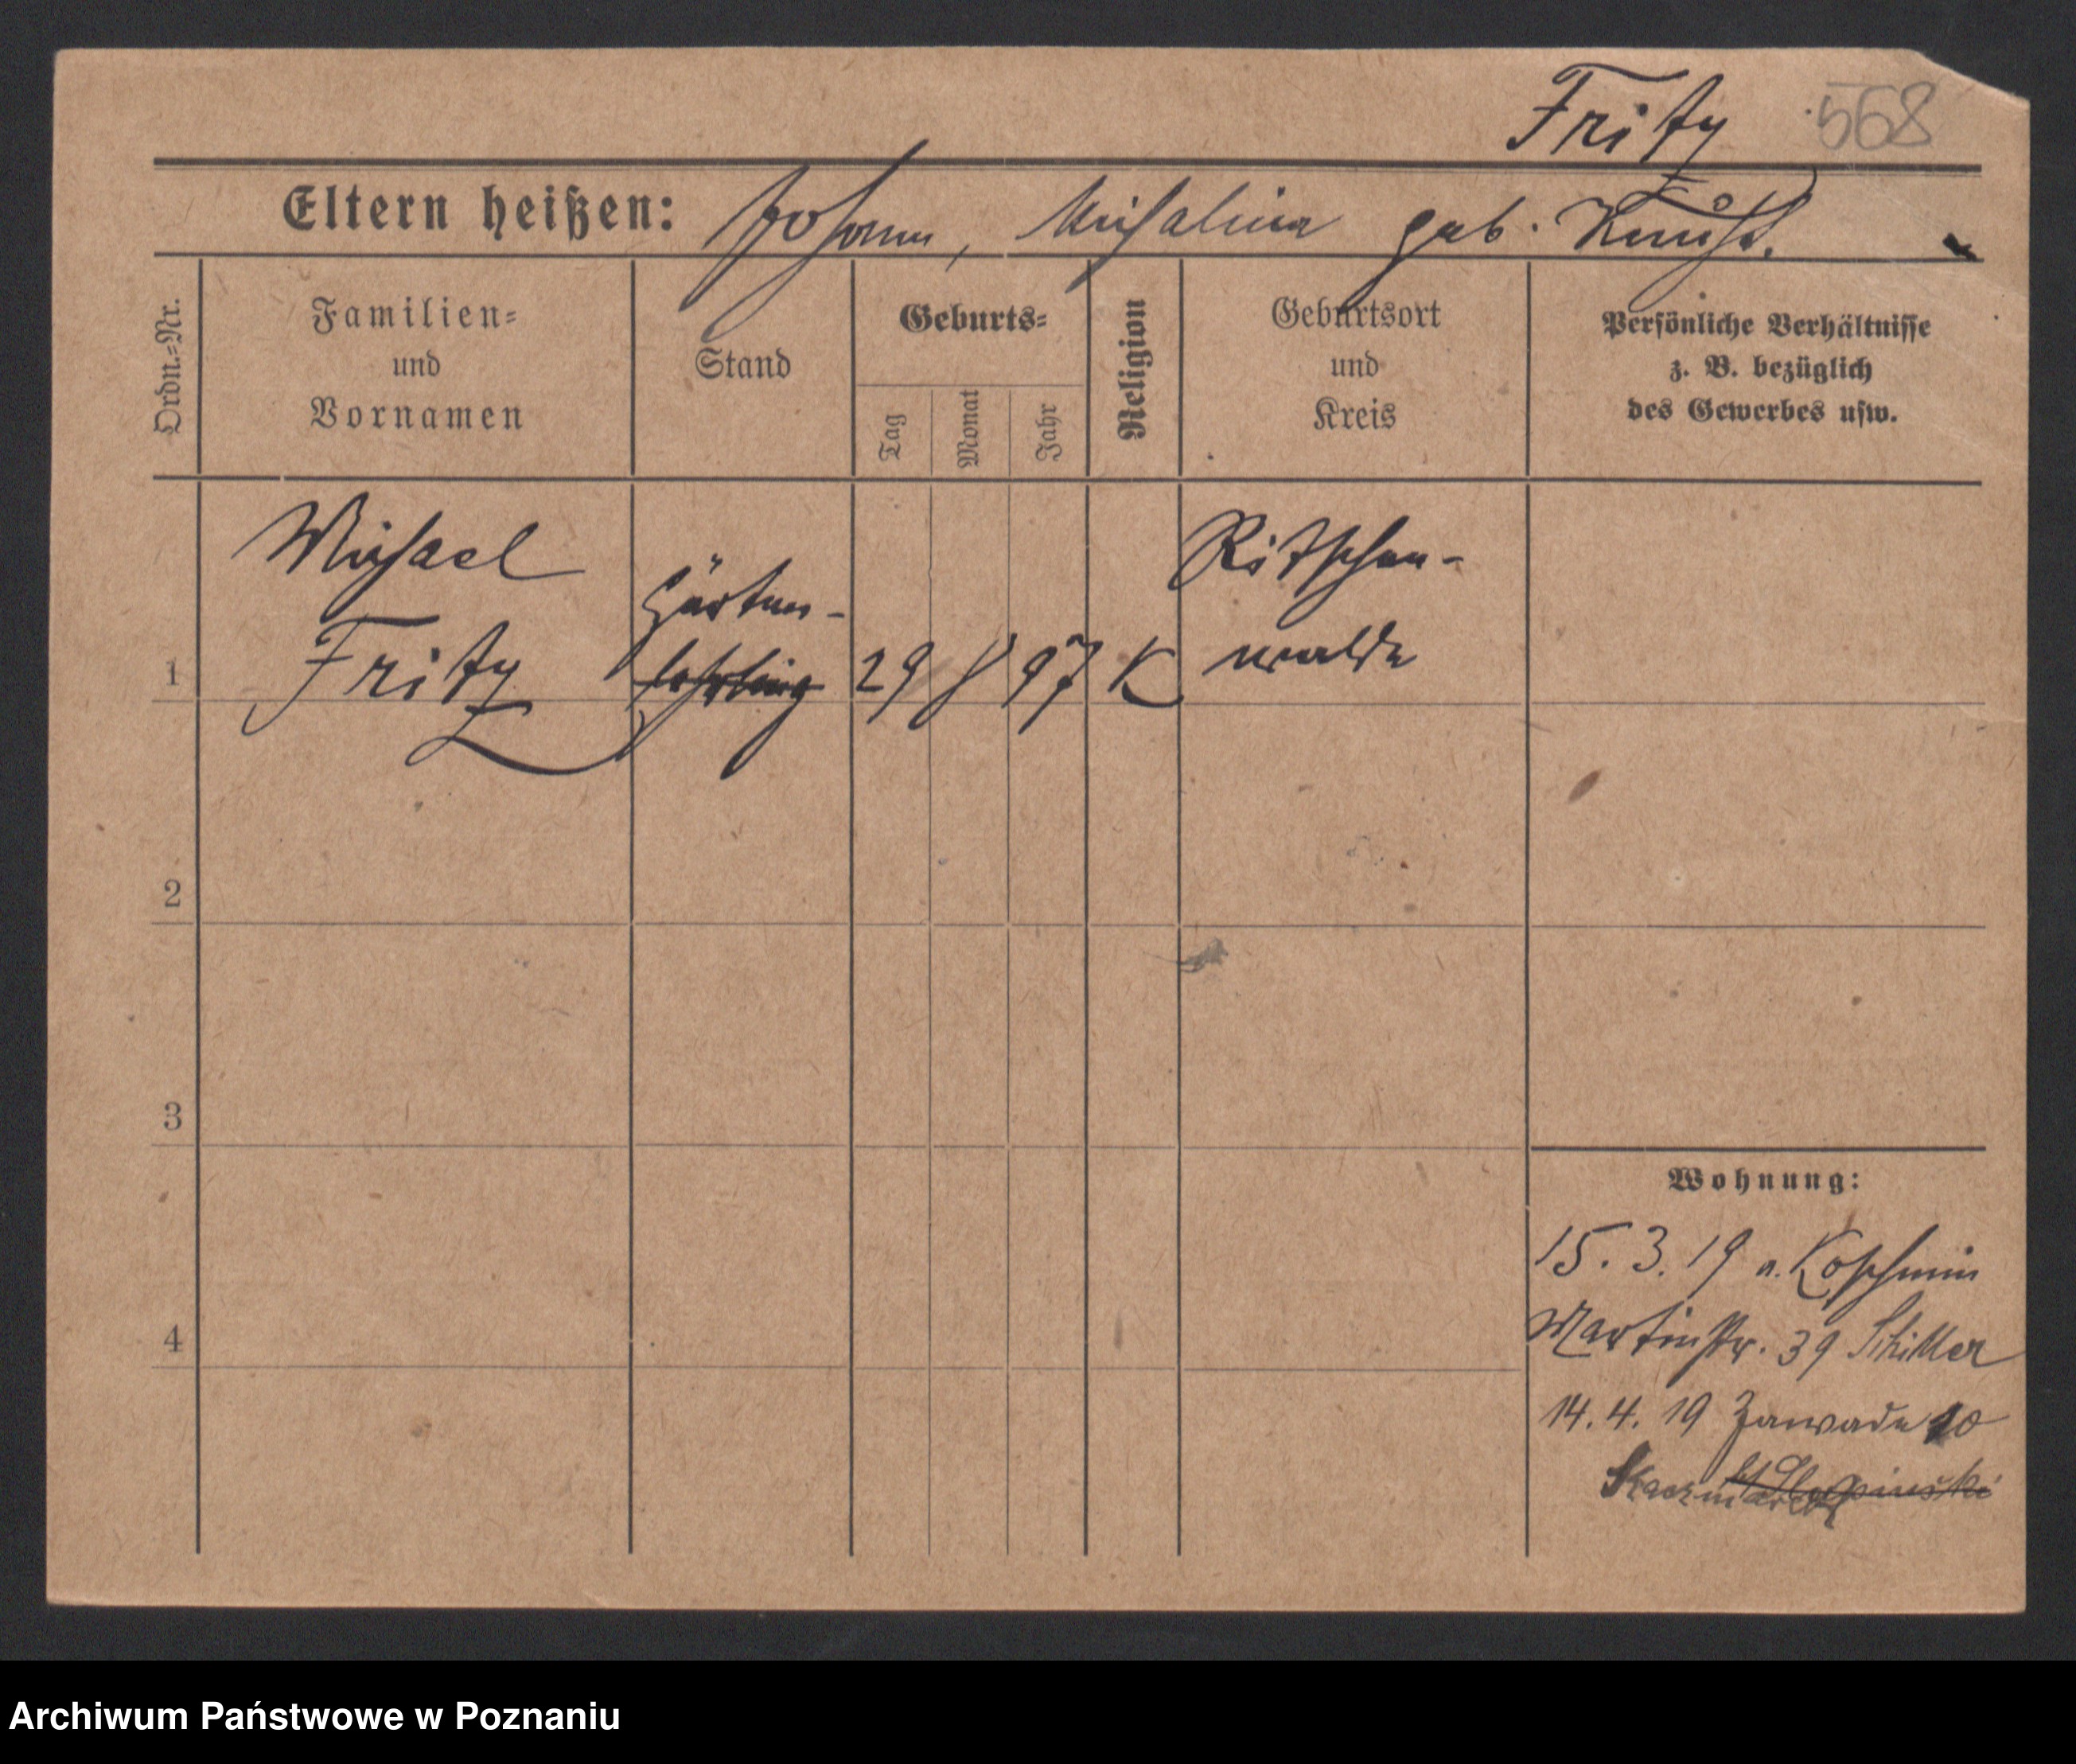 Fritz 568
Eltern heißen: Johann, Michalina geb.
Ordn.=Nr.
Familien=
und
Vornamen
Stand
Geburts=
Tag
Monat
Jahr
Religion
Geburtsort
und
Kreis
Persönliche Verhältnisse
z. B. bezüglich
des Gewerbes usw.
Michael
Fritz
Gärtner-
lehrling
29 97 K
Ritschen-
walde
1
2
3
4
Wohnung:
15. 3. 19 a. Koschmin
Martinstr. 39 Schiller
14. 4. 19 Zawade 10
Kaczmarek
Archiwum Państwowe w Poznaniu